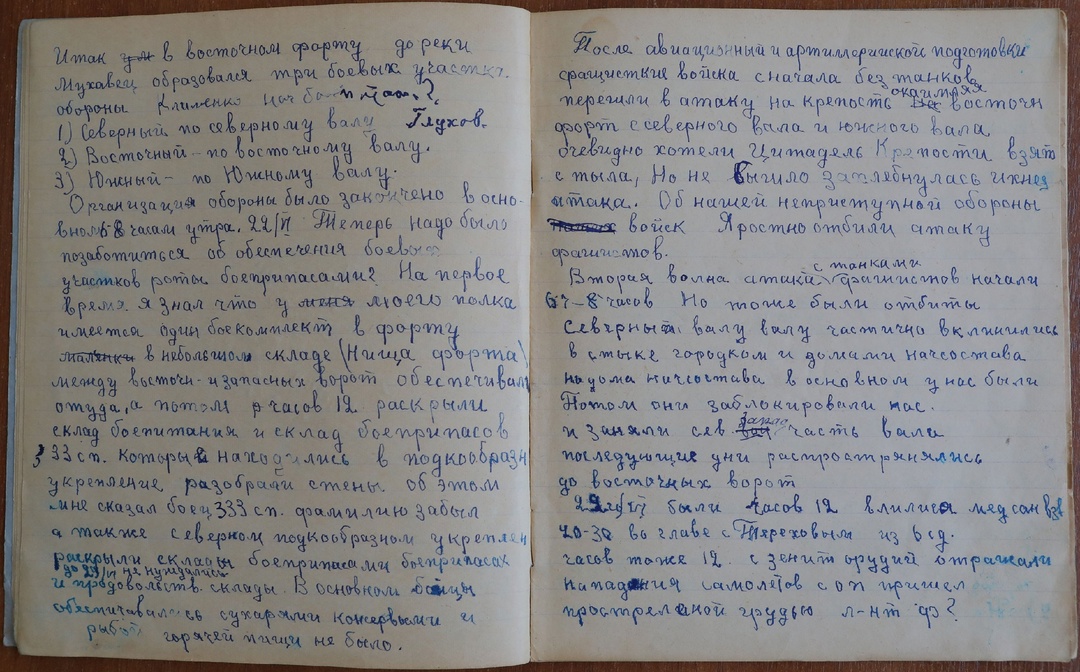 Итак в восточном форту до реки
Мухавец образовался три боевых участка.
обороны Клименко нач
1) Северный по северному валу Глухов.
2) Восточный - по восточному валу.
3) Южный - по Южному валу.
Организация обороны было закончено в осно-
вном 8 часам утра. 22/VI Теперь надо было
позаботиться об обеспечения боевых
участков роты боеприпасами? На первое
время я знал что у меня моего полка
имеется один боекомплект в форту
маленьки в небольшом складе (Ниша форта)
между восточн- и запасных ворот обеспечивали
оттуда, а потом часов 12 раскрыли
склад боепитания и склад боеприпасов
333 сп. Которые находились в подкообразн
укрепление разобрали стены. об этом
мне сказал боец 333 сп. фамилию забыл
а также северном подкообразном укреплен
раскрыли склады боеприпасами боеприпасах
до 29/VI не нуждались
и продовольств. склады. В основном бойцы
обеспичивались сухарями консервыми и
рыбой горячей пищи не было.
После авиационный и артиллерийской подготовки
фащистские войска сначала без танков
окаймляя
перешли в атаку на крепость восточн
форт с северного вала и южного вала
очевидно хотели Цитадель Крепости взят
с тыла, Но не вышло захлебнулась ихнея
атака. Об нашей неприступной обороны
войск Яростно отбили атаку
фашистов.
с танками
Вторая волна атаки фашистов начали
7-8 часов Но тоже были отбиты
Северный валу валу частично вклинились
в стыке городком и домами начсостава
на дома начсостава в основном у нас были
Потом они заблокировали нас.
и заняли сев. запад часть вала
последующие дни распространялись
до восточных ворот
22/VI были часов 12 влились медсан взв
20-30 во главе с Тереховым из 6 сд.
часов тоже 12. с зенит орудий отражали
нападения самолетов с оп пришел
прострелиной грудью л-нт фэ?